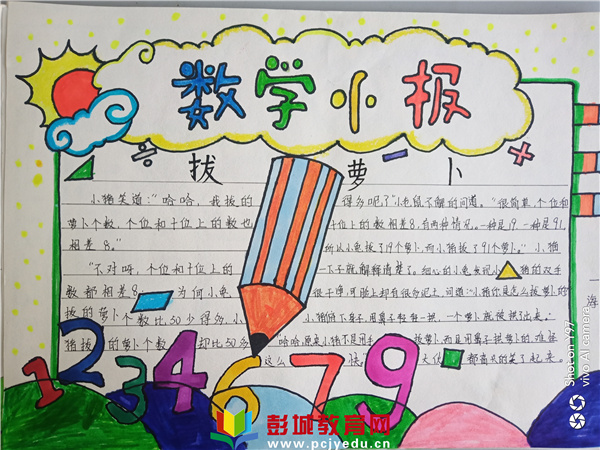 数学小报
拔萝卜
小猪笑道:“哈哈,我拔的 得多呢了”小兔鼠不解的问道。“很简单,个位和
萝卜个数,个位和十位上的数也 十位上的数相差8,有两种情况。一种是19,一种是91,
相差8。” 所以小兔拔了19个萝卜,而小猪拔了91个萝卜。”小猪
“不对呀,个位和十位上的 一下子就解释清楚了。细心的小兔发现小猪的双手
数都相差8,为何小兔 很干净,可脸上却有很多泥土,问道:“小猪你是怎么拔萝卜的
拔的萝卜个数比50少得多,小 小猪俯下身子,用鼻子轻轻一拱,一个萝卜就被拱出来。
猪拔 的萝卜个数 却比50多 “哈哈,原来小猪不是用手 拔萝卜,而是用鼻子拱萝卜的,难怪
这么 快 大伙 都高兴的笑了起来。
1 2 3 4 6 7 9
海
彭城教育网
www.pcjyedu.cn
Shot on Y97
vivo AI camera